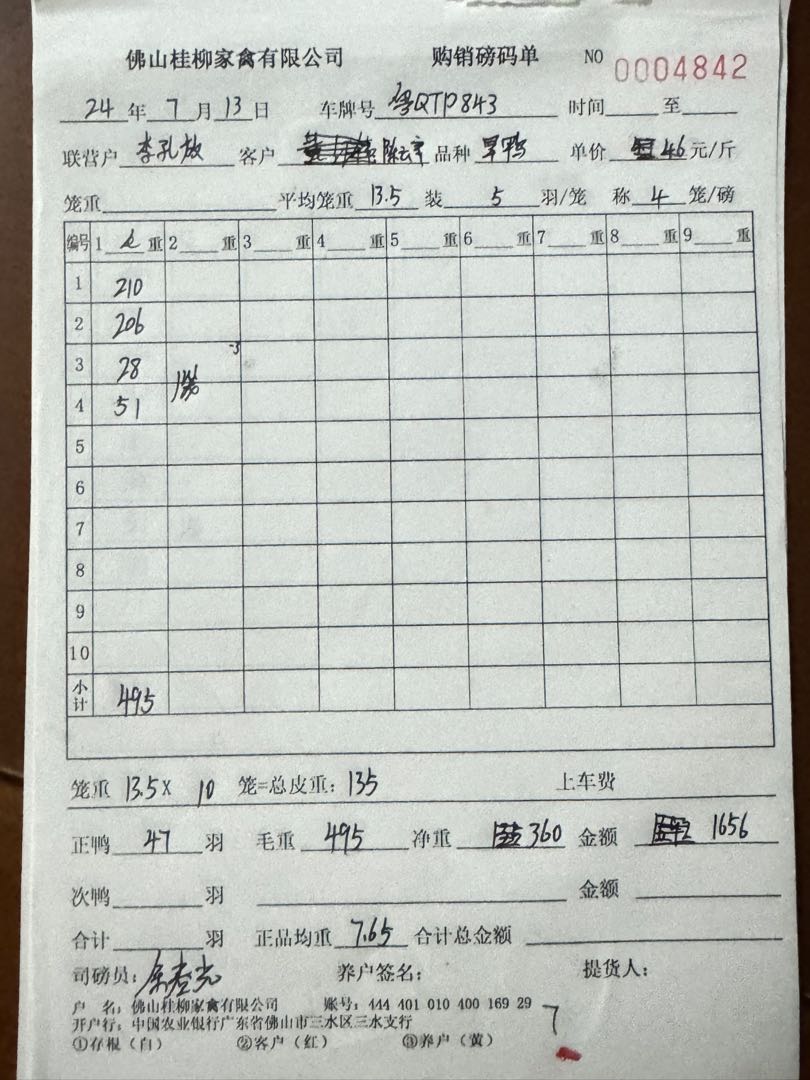 佛山桂柳家禽有限公司 购销磅码单 NO 0004842
24 年 7 月 13 日 车牌号 粤QTP843 时间 至
联营户 李孔放 客户 品种 旱鸭 单价 46 元/斤
笼重 平均笼重 13.5 装 5 羽/笼 称 4 笼/磅
编号 1 重 2 重 3 重 4 重 5 重 6 重 7 重 8 重 9 重
1 210
2 206
3 28 -3
4 51
5
6
7
8
9
10
小计 495
笼重 13.5 X 10 笼=总皮重: 135 上车费
正鸭 47 羽 毛重 495 净重 360 金额 1656
次鸭 羽 金额
合计 羽 正品均重 7.65 合计总金额
司磅员: 养户签名: 提货人:
户 名: 佛山桂柳家禽有限公司 账号: 444 401 010 400 169 29
开户行: 中国农业银行广东省佛山市三水区三水支行 7
①存根（白） ②客户（红） ③养户（黄）